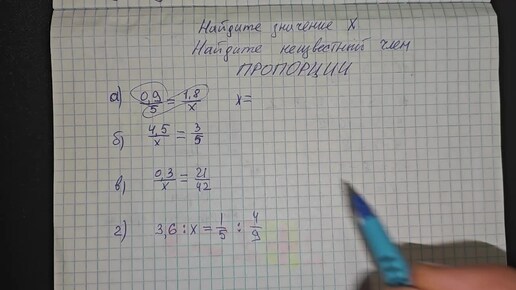 Найдите значение X
Найдите неизвестный член
ПРОПОРЦИИ
а) 0,9/5 = 1,8/x x=
б) 4,5/x = 3/5
в) 0,3/x = 21/42
г) 3,6 : x = 1/5 : 4/9